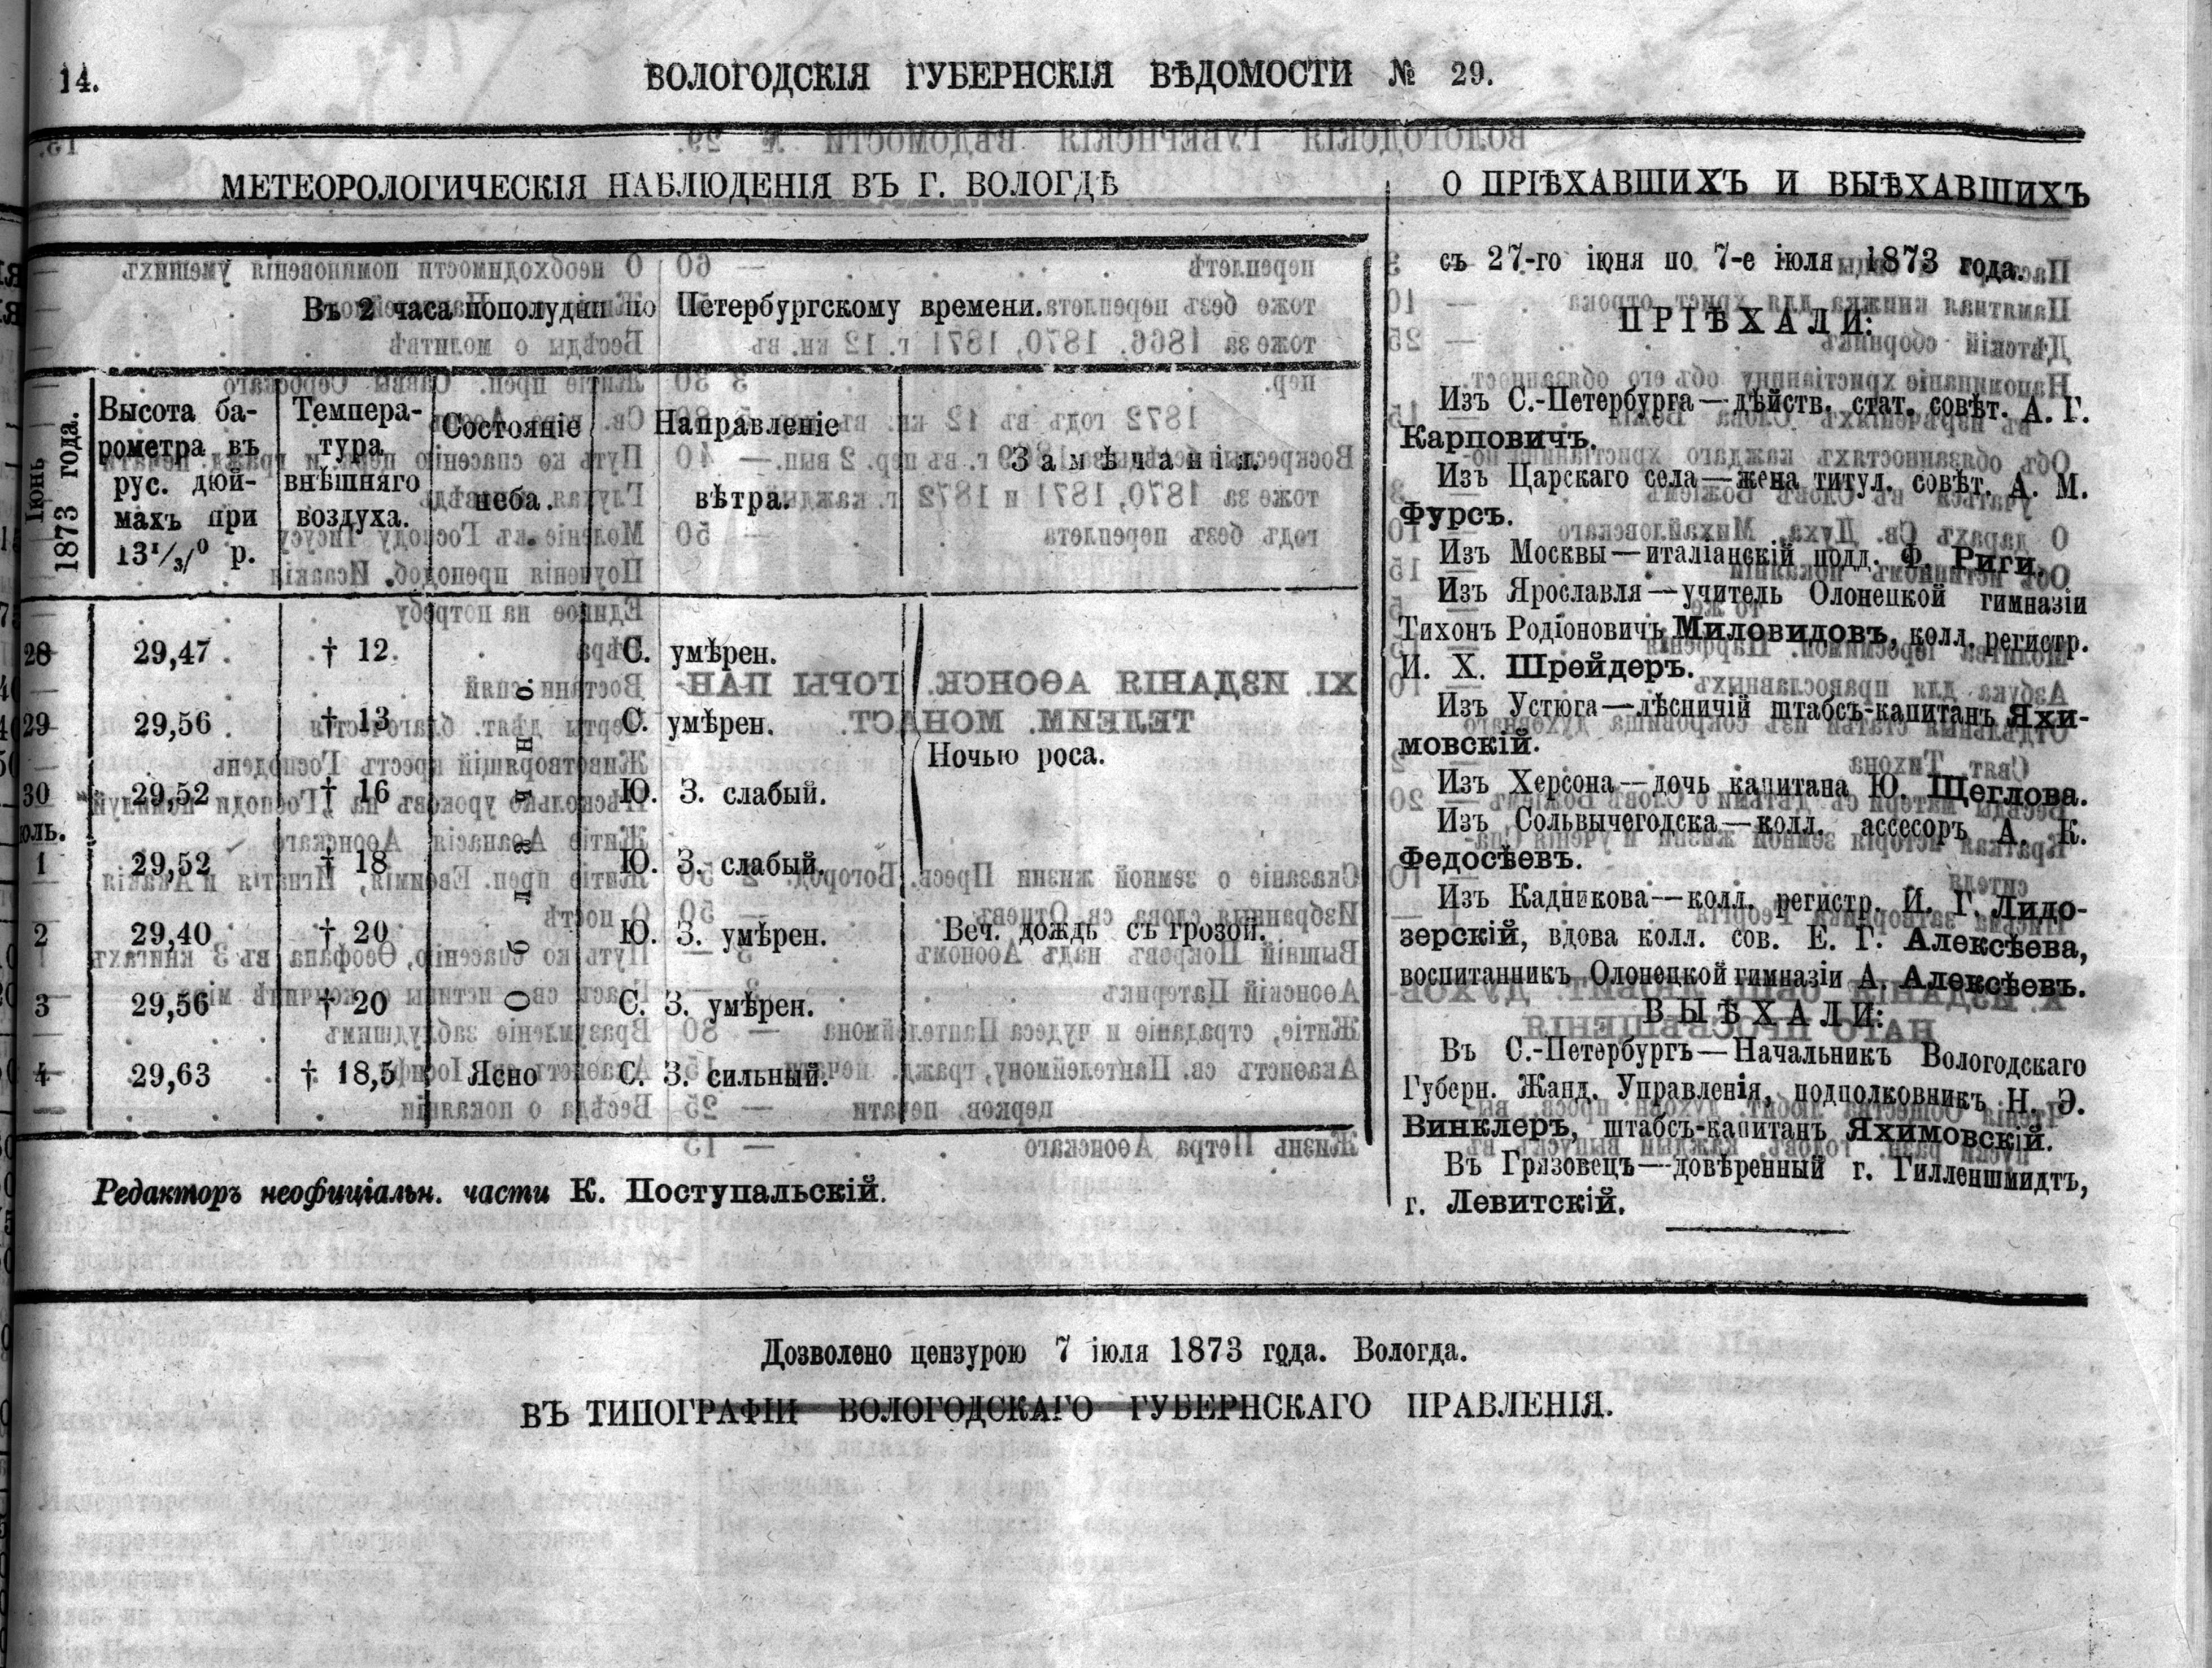 14.
ВОЛОГОДСКІЯ ГУБЕРНСКІЯ ВѢДОМОСТИ № 29.
МЕТЕОРОЛОГИЧЕСКІЯ НАБЛЮДЕНІЯ ВЪ Г. ВОЛОГДѢ
Въ 2 часа пополудни по Петербургскому времени.
Іюнь 1873 года.
Высота ба-
рометра въ
рус. дюй-
махъ при
13¹/₃/⁰ р.
Темпера-
тура
внѣшняго
воздуха.
Состояніе
неба.
Направленіе
вѣтра.
Замѣчанія.
28 29,47 † 12 С. умѣрен.
29 29,56 † 13 С. умѣрен.
Ночью роса.
30 29,52 † 16 Ю. З. слабый.
юль.
1 29,52 † 18 Ю. З. слабый.
2 29,40 † 20 Ю. З. умѣрен. Веч. дождь съ грозой.
3 29,56 † 20 С. З. умѣрен.
Облачно.
4 29,63 † 18,5 Ясно С. З. сильный.
Редакторъ неофиціальн. части К. Поступальскій.
О ПРІѢХАВШИХЪ И ВЫѢХАВШИХЪ
съ 27-го іюня по 7-е іюля 1873 года.
ПРІѢХАЛИ:
Изъ С.-Петербурга—дѣйств. стат. совѣт. А. Г.
Карповичъ.
Изъ Царскаго села—жена титул. совѣт. А. М.
Фурсъ.
Изъ Москвы—италіанскій подд. Ф. Риги.
Изъ Ярославля—учитель Олонецкой гимназіи
Тихонъ Родіоновичъ Миловидовъ, колл. регистр.
И. Х. Шрейдеръ.
Изъ Устюга—лѣсничій штабсъ-капитанъ Яхи-
мовскій.
Изъ Херсона—дочь капитана Ю. Щеглова.
Изъ Сольвычегодска—колл. ассесоръ А. К.
Федосѣевъ.
Изъ Кадникова—колл. регистр. И. Г. Лидо-
зерскій, вдова колл. сов. Е. Г. Алексѣева,
воспитанникъ Олонецкой гимназіи А. Алексѣевъ.
ВЫѢХАЛИ:
Въ С.-Петербургъ—Начальникъ Вологодскаго
Губерн. Жанд. Управленія, подполковникъ Н. Э.
Винклеръ, штабсъ-капитанъ Яхимовскій.
Въ Грязовецъ—довѣренный г. Гилленшмидтъ,
г. Левитскій.
Дозволено цензурою 7 іюля 1873 года. Вологда.
ВЪ ТИПОГРАФІИ ВОЛОГОДСКАГО ГУБЕРНСКАГО ПРАВЛЕНІЯ.